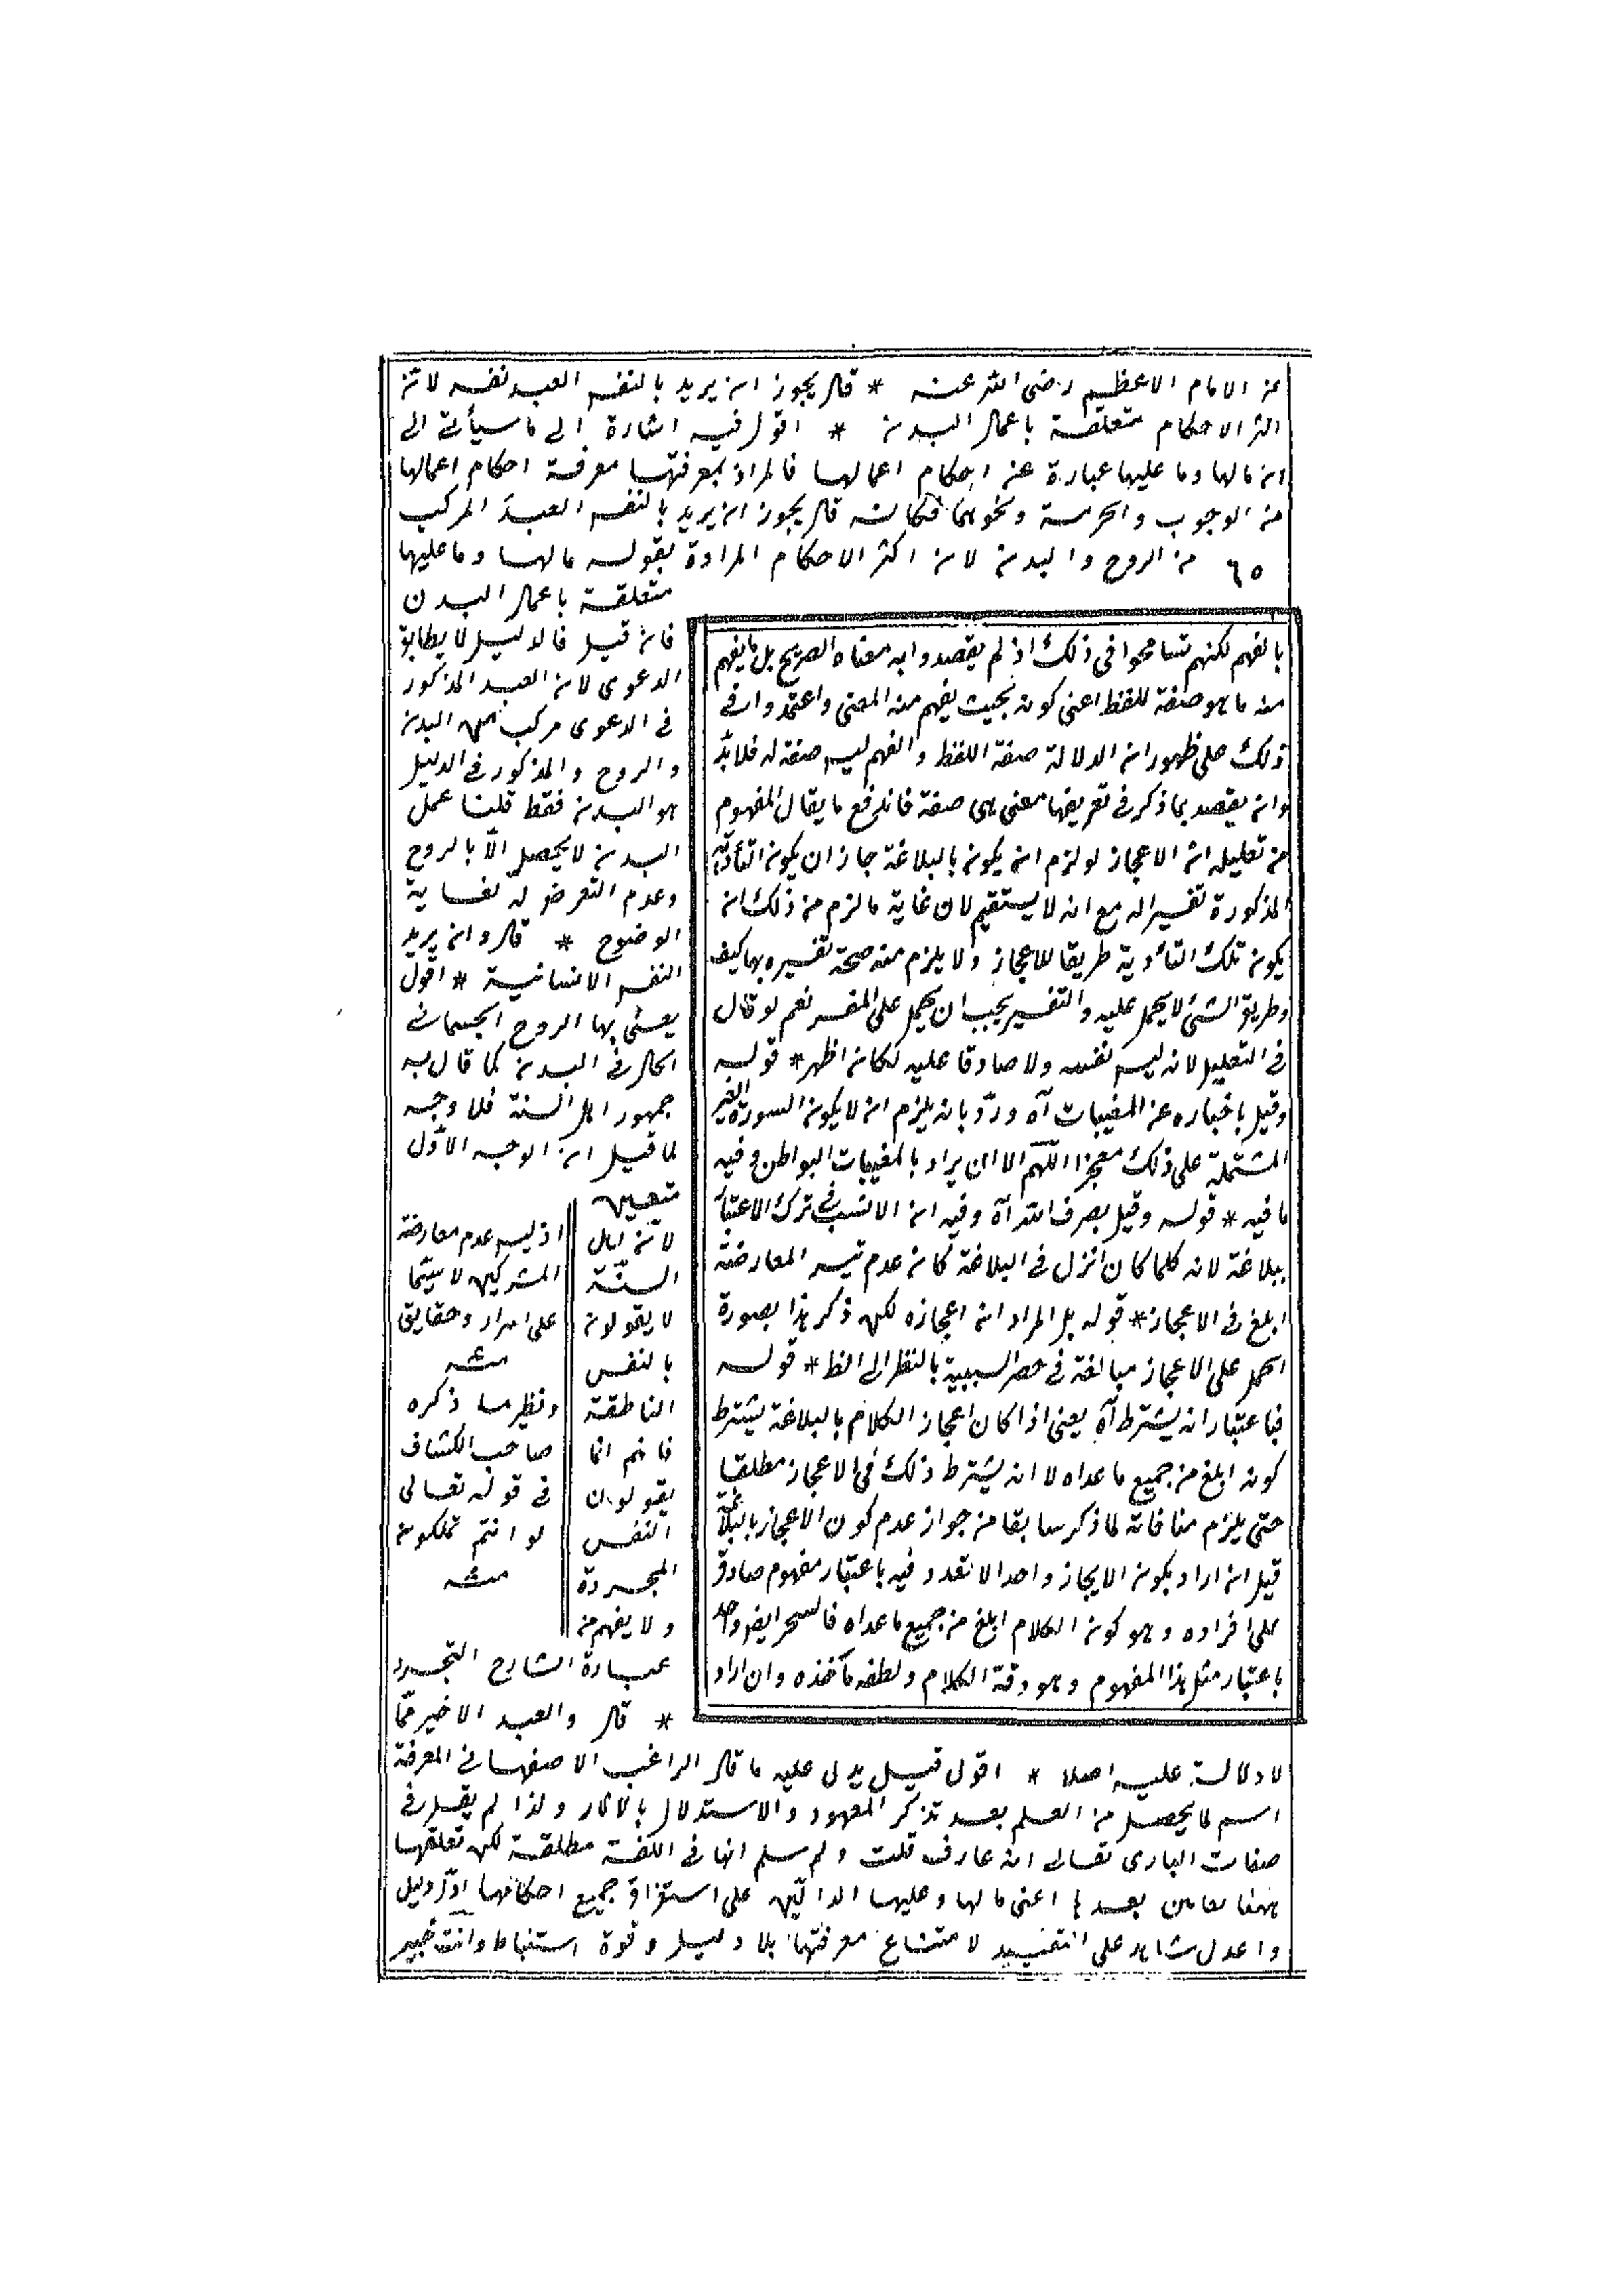 عن الامام الاعظم رضى الله عنه * قال يجوز ان يريد بالنفس العبد نفسه لان
اكثر الاحكام متعلقة باعمال البدن * اقول فيه اشارة الى ما سيأتى الى
ان مالها وما عليها عبارة عن احكام اعمالها فالمراد بمعرفتها معرفة احكام اعمالها
من الوجوب والحرمة ونحوهما فكانه قال يجوز ان يريد بالنفس العبد المركب
٦٥ من الروح والبدن لان اكثر الاحكام المرادة بقوله مالها وما عليها
متعلقة باعمال البدن
فان قيل فالدليل لا يطابق
الدعوى لان العبد المذكور
فى الدعوى مركب من البدن
والروح والمذكور فى الدليل
هو البدن فقط قلنا عمل
البدن لا يحصل الّا بالروح
وعدم التعرض له لغاية
الوضوح * قال وان يريد
النفس الانسانية * اقول
يعنى بها الروح الجسمانى
الحال فى البدن كما قال به
جمهور اهل السنة فلا وجه
لما قيل ان الوجه الاوّل
متعين
لانّ اهل
السنّة
لا يقولون
بالنفس
الناطقة
فانهم انما
يقولون
النفس
المجردة
ولا يفهم من
عبارة الشارح التجرد
* قال والعبد الاخير ممّا
لا دلالة عليه اصلا * اقول قيل يدل عليه ما قال الراغب الاصفهانى المعرفة
اسم لما يحصل من العلم بعد تذكر المعهود والاستدلال بالآثار ولذا لم يقل فى
صفات البارى تعالى انه عارف قلت ولم سلم انها فى اللغة مطلقة لكن تعلقها
ههنا بعامين بعدها اعنى مالها وعليها الدالّين على استغراق جميع احكامها ادلّ دليل
واعدل شاهد على التقييد لامتناع معرفتها بلا دليل وقوة استنباط وانت خبير
اذ ليس عدم معارضة
المشركين لا سيّما
على اسرار وحقايق
منه
ونظير ما ذكره
صاحب الكشاف
فى قوله تعالى
لو انتم تملكون
منه
بالفهم لكنهم تسامحوا فى ذلك اذ لم يقصدوا به معناه الصريح بل ما يفهم
منه ما هو صفة للفظ اعنى كونه بحيث يفهم منه المعنى واعتمدوا فى
ذلك على ظهور ان الدلالة صفة اللفظ والفهم ليس صفة له فلا بدّ
وان يقصد بما ذكر فى تعريفها معنى هى صفة فاندفع ما يقال المفهوم
من تعليله ان الاعجاز لو لزم ان يكون بالبلاغة جاز ان يكون التأدية
المذكورة تفسيرا له مع انه لا يستقيم لان غاية ما لزم من ذلك ان
يكون تلك التأدية طريقا للاعجاز ولا يلزم منه صحة تفسيره بها كيف
وطريق الشئ لا يحمل عليه والتفسير يجب ان يحمل على المفسر نعم لو قال
فى التعليل لانه ليس نفسه ولا صادقا عليه لكان اظهر * قوله
وقيل باخباره عن المغيبات آه وردّ بانه يلزم ان لا يكون السورة الغير
المشتملة على ذلك معجزا اللهم الا ان يراد بالمغيبات البواطن وفيه
ما فيه * قوله وقيل بصرف الله آه وفيه ان الانسب فى ترك الاعتبا
ببلاغة لانه كلما كان انزل فى البلاغة كان عدم تيسر المعارضة
ابلغ فى الاعجاز * قوله بل المراد ان اعجازه لكن ذكر هذا بصورة
الحمل على الاعجاز مبالغة فى حصر السببية بالنظر الى الظ * قوله
فباعتبار انه يشترط آه يعنى اذا كان اعجاز الكلام بالبلاغة يشترط
كونه ابلغ من جميع ما عداه لا انه يشترط ذلك فى الاعجاز مطلقا
حتى يلزم منافاته لما ذكر سابقا من جواز عدم كون الاعجاز بالبلاغة
قيل ان اراد بكون الايجاز واحدا لا تعدد فيه باعتبار مفهوم صادق
على افراده وهو كون الكلام ابلغ من جميع ما عداه فالسحر ايضا واحد
باعتبار مثل هذا المفهوم وهو دقة الكلام ولطف مأخذه وان اراد